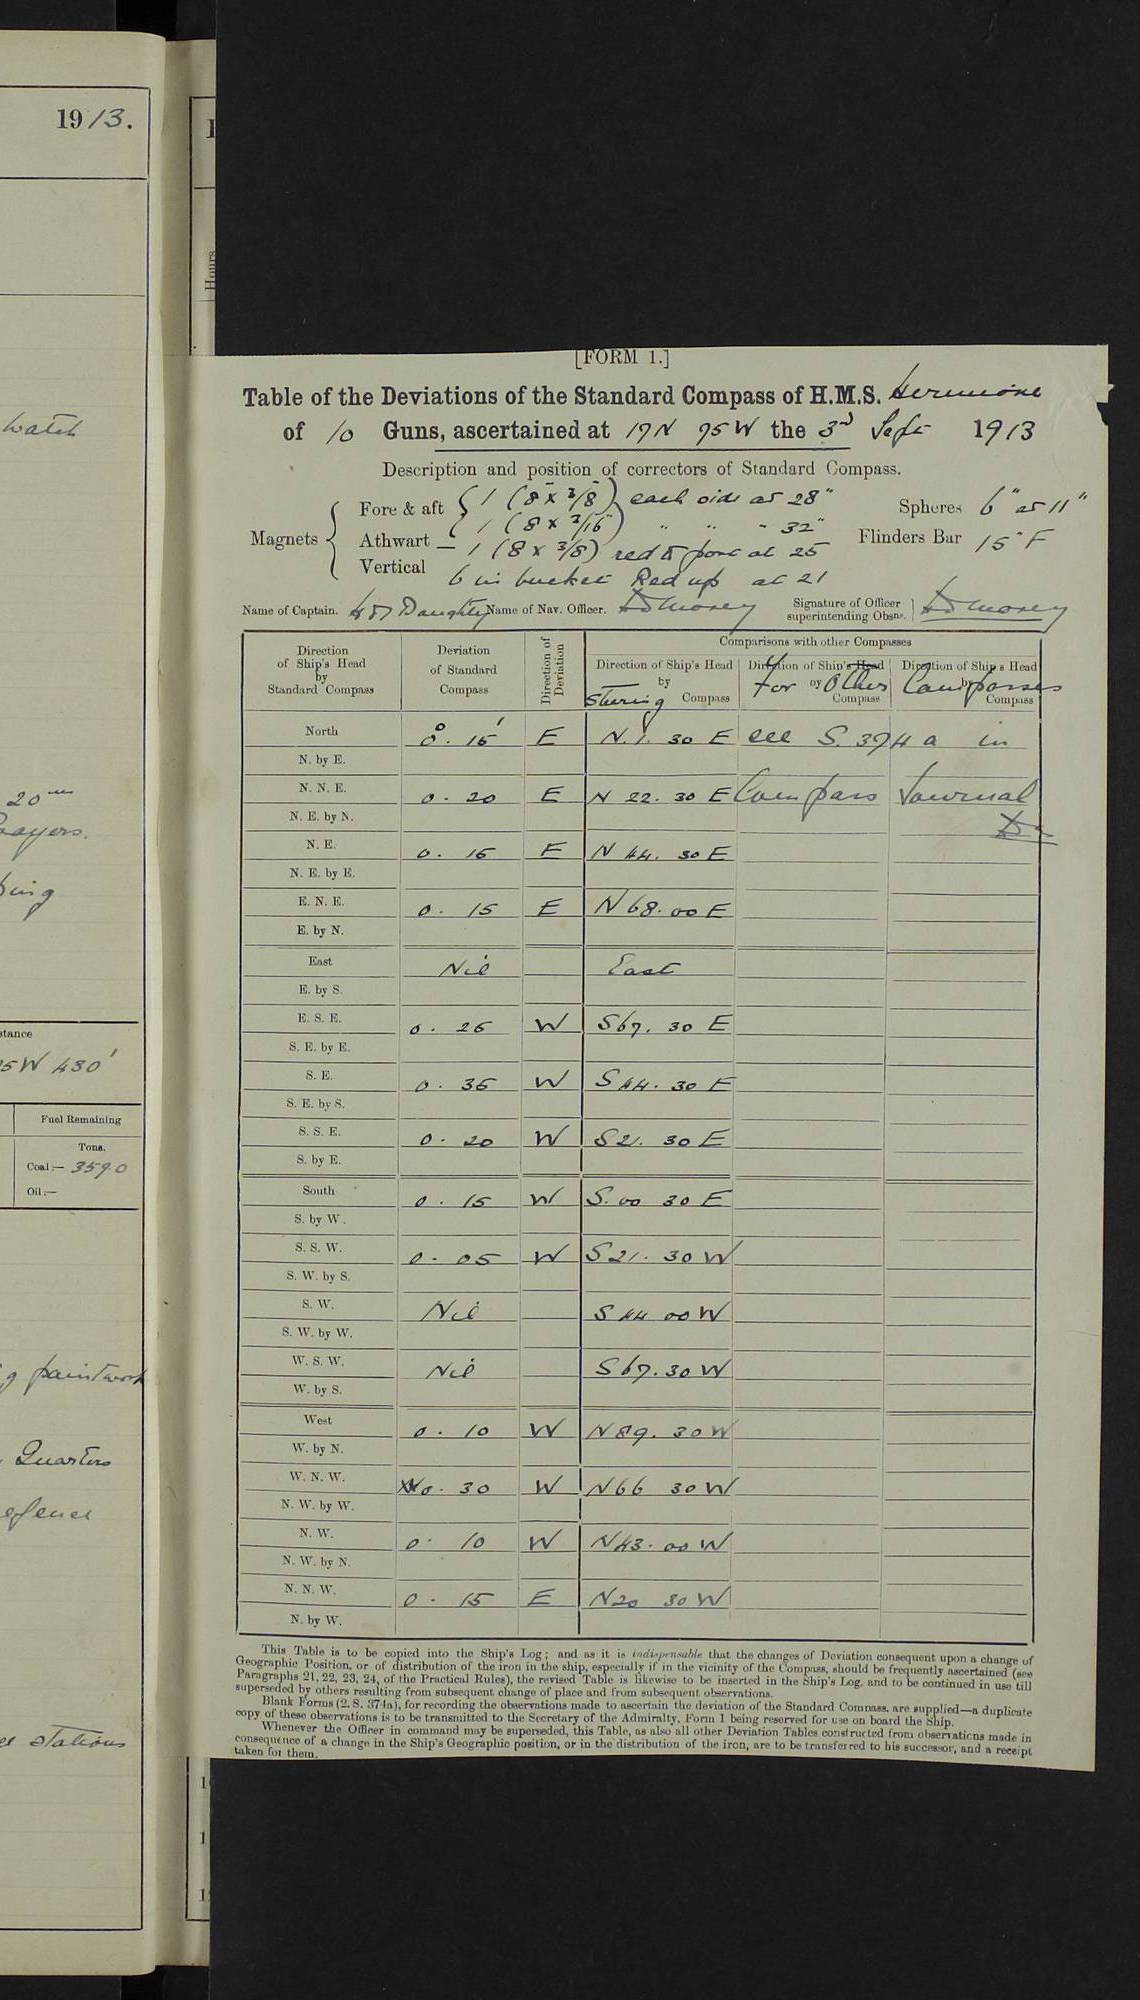 1913.
Hours
watch
20m
Prayers.
Distance
75W 430'
Fuel Remaining
Tons.
Coal:— 3590
Oil:—
paintwork
Quarters
Defence
stations
[FORM 1.]
Table of the Deviations of the Standard Compass of H.M.S. Hermione
of 10 Guns, ascertained at 17N 75W the 3rd Sept 1913
Description and position of correctors of Standard Compass.
Magnets
Fore & aft { 1 (8 x 3/8) each side at 28"
1 (8 x 3/16) " " " 32"
Athwart — 1 (8 x 3/8) red to port at 25
Vertical 6 in bucket Red up at 21
Spheres 6" at 11"
Flinders Bar 15" F
Name of Captain. Name of Nav. Officer. Signature of Officer superintending Obsns.
Direction of Ship's Head by Standard Compass
Deviation of Standard Compass
Direction of Deviation
Comparisons with other Compasses
Direction of Ship's Head by Steering Compass
Direction of Ship's Head by Compass
Direction of Ship's Head by Compass
For Other Compasses
North 0°. 15' E N. 1. 30 E see S. 374a in
N. by E.
N. N. E. 0. 20 E N 22. 30 E Compass Journal
N. E. by N.
N. E. 0. 15 E N 44. 30 E
N. E. by E.
E. N. E. 0. 15 E N 68. 00 E
E. by N.
East Nil East
E. by S.
E. S. E. 0. 25 W S 67. 30 E
S. E. by E.
S. E. 0. 35 W S 44. 30 E
S. E. by S.
S. S. E. 0. 20 W S 21. 30 E
S. by E.
South 0. 15 W S. 00 30 E
S. by W.
S. S. W. 0. 05 W S 21. 30 W
S. W. by S.
S. W. Nil S 44 00 W
S. W. by W.
W. S. W. Nil S 67. 30 W
W. by S.
West 0. 10 W N 89. 30 W
W. by N.
W. N. W. 0. 30 W N 66 30 W
N. W. by W.
N. W. 0. 10 W N 43. 00 W
N. W. by N.
N. N. W. 0. 15 E N 20 30 W
N. by W.
This Table is to be copied into the Ship's Log; and as it is indispensable that the changes of Deviation consequent upon a change of
Geographic Position, or of distribution of the iron in the ship, especially if in the vicinity of the Compass, should be frequently ascertained (see
Paragraphs 21, 22, 23, 24, of the Practical Rules), the revised Table is likewise to be inserted in the Ship's Log, and to be continued in use till
superseded by others resulting from subsequent change of place and from subsequent observations.
Blank Forms (2. S. 374a), for recording the observations made to ascertain the deviation of the Standard Compass, are supplied—a duplicate
copy of these observations is to be transmitted to the Secretary of the Admiralty, Form 1 being reserved for use on board the Ship.
Whenever the Officer in command may be superseded, this Table, as also all other Deviation Tables constructed from observations made in
consequence of a change in the Ship's Geographic position, or in the distribution of the iron, are to be transferred to his successor, and a receipt
taken for them.